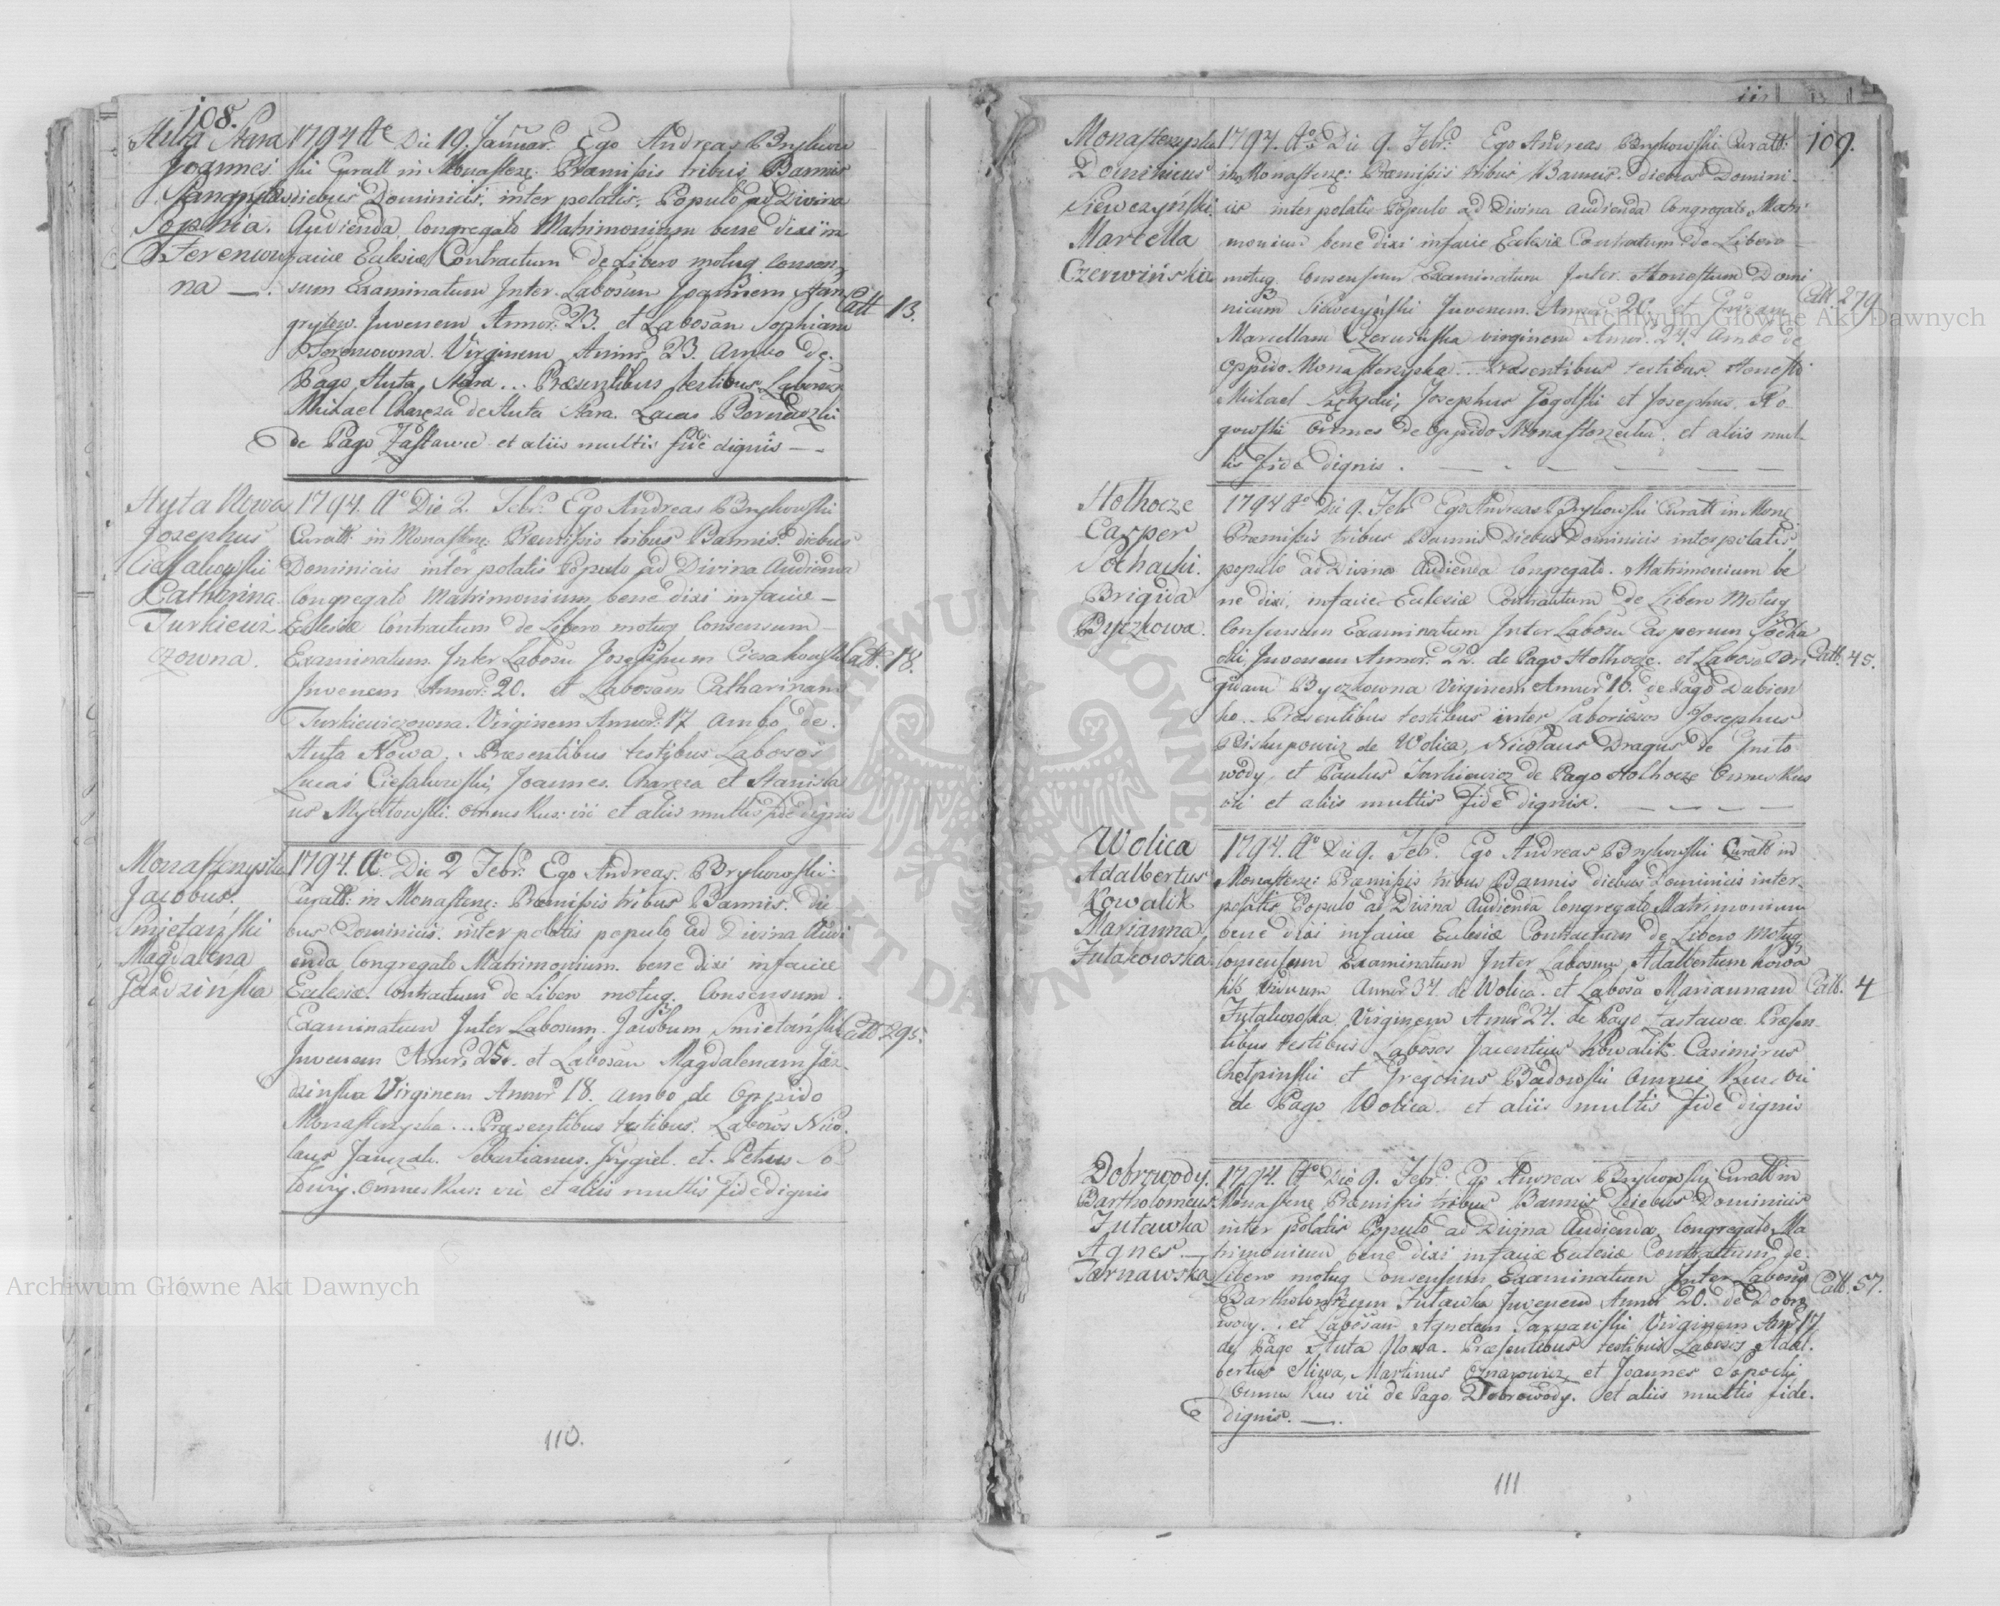 108.
Huta Stara
Joannes
Sophia.
na —.
1794 Ao Die 19. Januar. Ego Andreas Brykow
ski Curatt in Monasterz: Præmissis tribus Bannis
diebus Dominicis, inter polatis, Populo ad Divina
Audienda Congregato Matrimonium bene dixi in
facie Eclesiæ Contractum de Libero motuq Consen
sum Examinatum Inter Labosum Joannem
Juvenem Annor: 23. et Labosan Sophiam
Virginem Annor 23. Ambo de
Pago Huta Stara... Præsentibus testibus
Michael de Huta Stara. Lucas
de Pago et aliis multis fide dignis —
Catt 13.
Huta Nowa
Josephus
Catharina
Turkiewi
czowna.
1794. Ao Die 2. Febr. Ego Andreas Brykowski
Curatt: in Monasterz Præmissis tribus Bannis. diebus
Dominicis inter polatis Populo ad Divina Audienda
Congregato Matrimonium bene dixi in facie —
Eclesiæ Contractum de Libero motuq Consensum —
Examinatum Inter Labosu Josephum
Juvenem Annor: 20. et Labosam Catharinam
Turkiewiczowna. Virginem Annor: 17 Ambo de.
Huta Nowa. Præsentibus testibus
Lucas Joannes et Stanisla
us et aliis multis fide dignis
Catt. 18.
Monasterzyska
Jacobus.
Smietański
Magdalena
1794. Ao. Die 2 Febr. Ego Andreas. Brykowski.
Curatt: in Monasterz: Præmissis tribus Bannis. die
bus Dominicis. inter polatis populo ad Divina Audi
enda Congregato Matrimonium. bene dixi in facie
Eclesiæ. Contractum de Libero motuq. Consensum.
Examinatum Inter Labosum. Jacobum Smietański
Juvenem Annor: 25. et Labosam Magdalenam
Virginem Annor 18. Ambo de Oppido
Monasterzyska... Præsentibus testibus. Nico
laus Sebastianus. et. Petrus
et aliis multis fide dignis
Catt 295.
110.
109.
Monasterzyska
Dominicus
Siewczyński
Marcella
Czerwińska
1794. Ao. Die 9. Febr. Ego Andreas Brykowski Curatt:
in Monasterz: Præmissis tribus Bannis. diebus Domini
cis inter polatis Populo ad Divina Audienda Congregato Matri
monium bene dixi in facie Eclesiæ Contractum de Libero —
motuq Consensum Examinatum Inter. Domi
nicum Siewczyński Juvenem. Annor 26 et
Marcellam Czerwińska virginem Annor. 24. Ambo de
Oppido Monasterzyska... Præsentibus testibus.
Michael Josephus et Josephus.
Omnes de Oppido Monasterzyska. et aliis mul
tis fide dignis.
Catt 279
Holhocze
Casper
Sochacki.
Brigida
Byczkowa.
1794 Ao Die 9. Febr Ego Andreas Brykowski Curatt in Mone
Præmissis tribus Bannis Diebus Dominicis inter polatis
populo ad Divina Audienda Congregato. Matrimonium be
ne dixi, in facie Eclesiæ Contractum de Libero Motuq
Consensum Examinatum Inter Labosu Casperum Socha
cki Juvenem Annor. 22. de Pago Holhocze. et Labosa Bri
gidam Byczkowna Virginem Annor 16. de Pago Dubien
ko.. Præsentibus testibus inter Laboriosos Josephus
Biskupowicz de Wolica, Nicolaus de
et Paulus Turkiewicz de Pago Holhocze Omnes Rus
vii et aliis multis fide dignis.
Catt. 45.
Wolica
Adalbertus
Kowalik
Marianna
Futakowska
1794. Ao Die 9. Febr. Ego Andreas Brykowski Curatt in
Monasterz: Præmissis tribus Bannis diebus Dominicis inter
polatis Populo ad Divina Audienda Congregato Matrimonium
bene dixi in facie Eclesiæ Contractum de Libero motuq
Consensum Examinatum Inter Labosum Adalbertum Kowa
lik viduum Annor 34. de Wolica. et Labosa Mariannam
Futakowska Virginem Annor 24. de Pago Præsen
tibus testibus Kowalik Casimirus
et Gregorius Badowski Omnes Rus vii
de Pago Wolica. et aliis multis fide dignis
Catt. 4
Dobrowody.
Bartholomeus
Futawka
Agnes —
Tarnawska
1794. Ao Die 9. Febr. Ego Andreas Brykowski Curatt in
Monasterz Præmissis tribus Bannis Diebus Dominicis
inter polatis Populo ad Divina Audienda, Congregato Ma
trimonium bene dixi in facie Eclesiæ Contractum de
Libero motuq Consensum Examinatum Inter Labosu
Bartholomeum Futawka Juvenem Annor 20. de Dobro
wody.. et Labosan Agnetem Tarnawski Virginem Ann 17
de Pago Huta Nowa. Præsentibus testibus Adal
bertus Martinus et Joannes
Omnes Rus vii de Pago Dobrowody. et aliis multis fide.
dignis. —.
Catt. 57.
111
Archiwum Główne Akt Dawnych
Archiwum Główne Akt Dawnych
ARCHIWUM GŁÓWNE AKT DAWNYCH